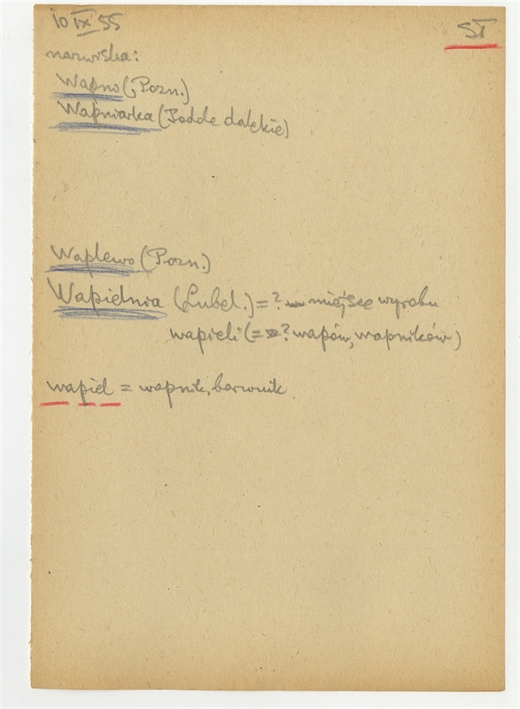 10 IX 55
ST
nazwiska:
Wapno (Pozn.)
Wapniarka (Podole dalekie)
Waplewo (Pozn.)
Wapielnia (Lubel.) = ? miejsce wyrobu
wapieli (= ? wapów, wapników)
wapiel = wapnik, barwnik